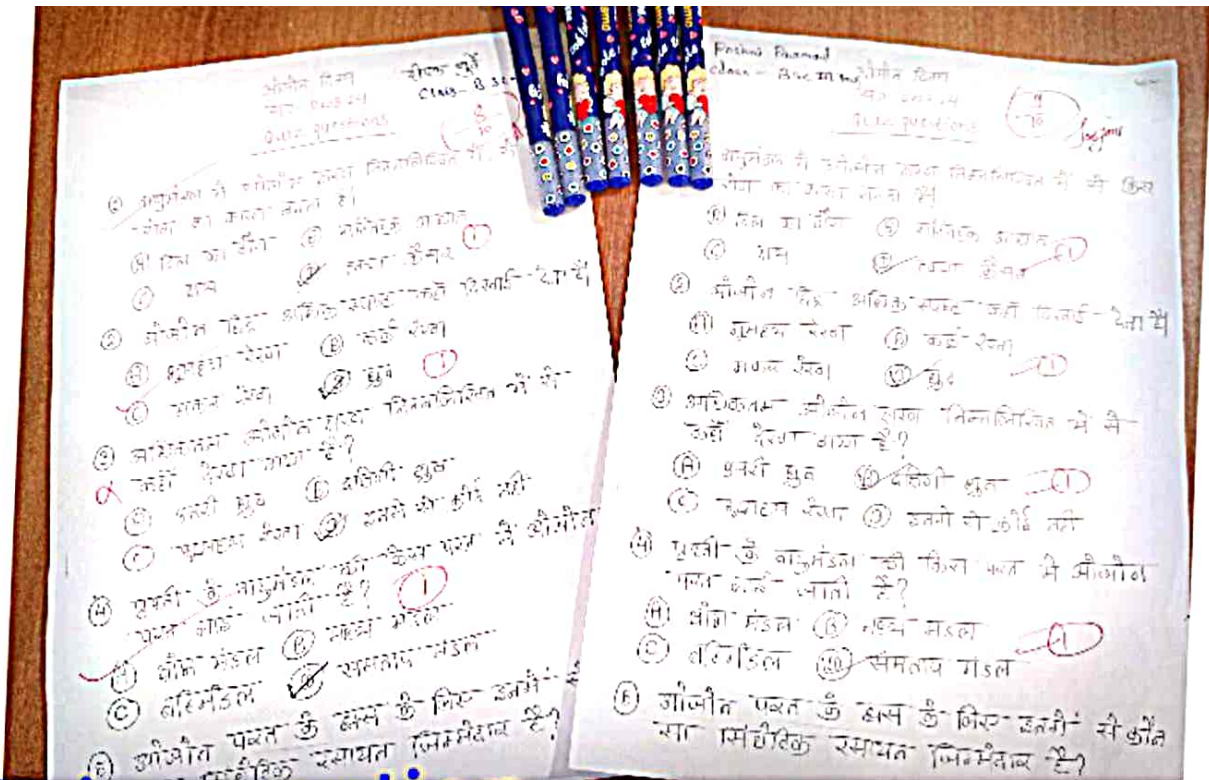 ओजोन दिवस
Class- B.Sc-
Quiz questions
8
10
① वायुमंडल में ओजोन ह्रास निम्नलिखित में से
का कारण बनता है।
Ⓐ दिल का दौरा Ⓑ मस्तिष्क आघात
Ⓒ दमा Ⓓ त्वचा कैंसर ①
② ओजोन छिद्र अधिक स्पष्ट कहाँ दिखाई देता है
Ⓐ भूमध्य रेखा Ⓑ कर्क रेखा
Ⓒ मकर रेखा Ⓓ ध्रुव ①
③ अधिकतम ओजोन ह्रास निम्नलिखित में से
कहाँ देखा गया है?
Ⓐ उत्तरी ध्रुव Ⓑ दक्षिणी ध्रुव
Ⓒ भूमध्य रेखा Ⓓ इनमें से कोई नहीं
④ पृथ्वी के वायुमंडल की किस परत में ओजोन
परत पाई जाती है? ①
Ⓐ क्षोभ मंडल Ⓑ मध्य मंडल
Ⓒ बहिर्मंडल Ⓓ समताप मंडल
⑤ ओजोन परत के ह्रास के लिए इनमें
सिंथेटिक रसायन जिम्मेदार है?
Class -
ओजोन दिवस
Quiz questions
9
10
वायुमंडल में ओजोन ह्रास निम्नलिखित में से किस
रोग का कारण बनता है।
Ⓐ दिल का दौरा Ⓑ मस्तिष्क आघात
Ⓒ दमा Ⓓ त्वचा कैंसर ①
② ओजोन छिद्र अधिक स्पष्ट कहाँ दिखाई देता है।
Ⓐ भूमध्य रेखा Ⓑ कर्क रेखा
Ⓒ मकर रेखा Ⓓ ध्रुव ①
③ अधिकतम ओजोन ह्रास निम्नलिखित में से
कहाँ देखा गया है?
Ⓐ उत्तरी ध्रुव Ⓑ दक्षिणी ध्रुव ①
Ⓒ भूमध्य रेखा Ⓓ इनमें से कोई नहीं
④ पृथ्वी के वायुमंडल की किस परत में ओजोन
परत पाई जाती है?
Ⓐ क्षोभ मंडल Ⓑ मध्य मंडल
Ⓒ बहिर्मंडल Ⓓ समताप मंडल ①
⑤ ओजोन परत के ह्रास के लिए इनमें से कौन
सा सिंथेटिक रसायन जिम्मेदार है?